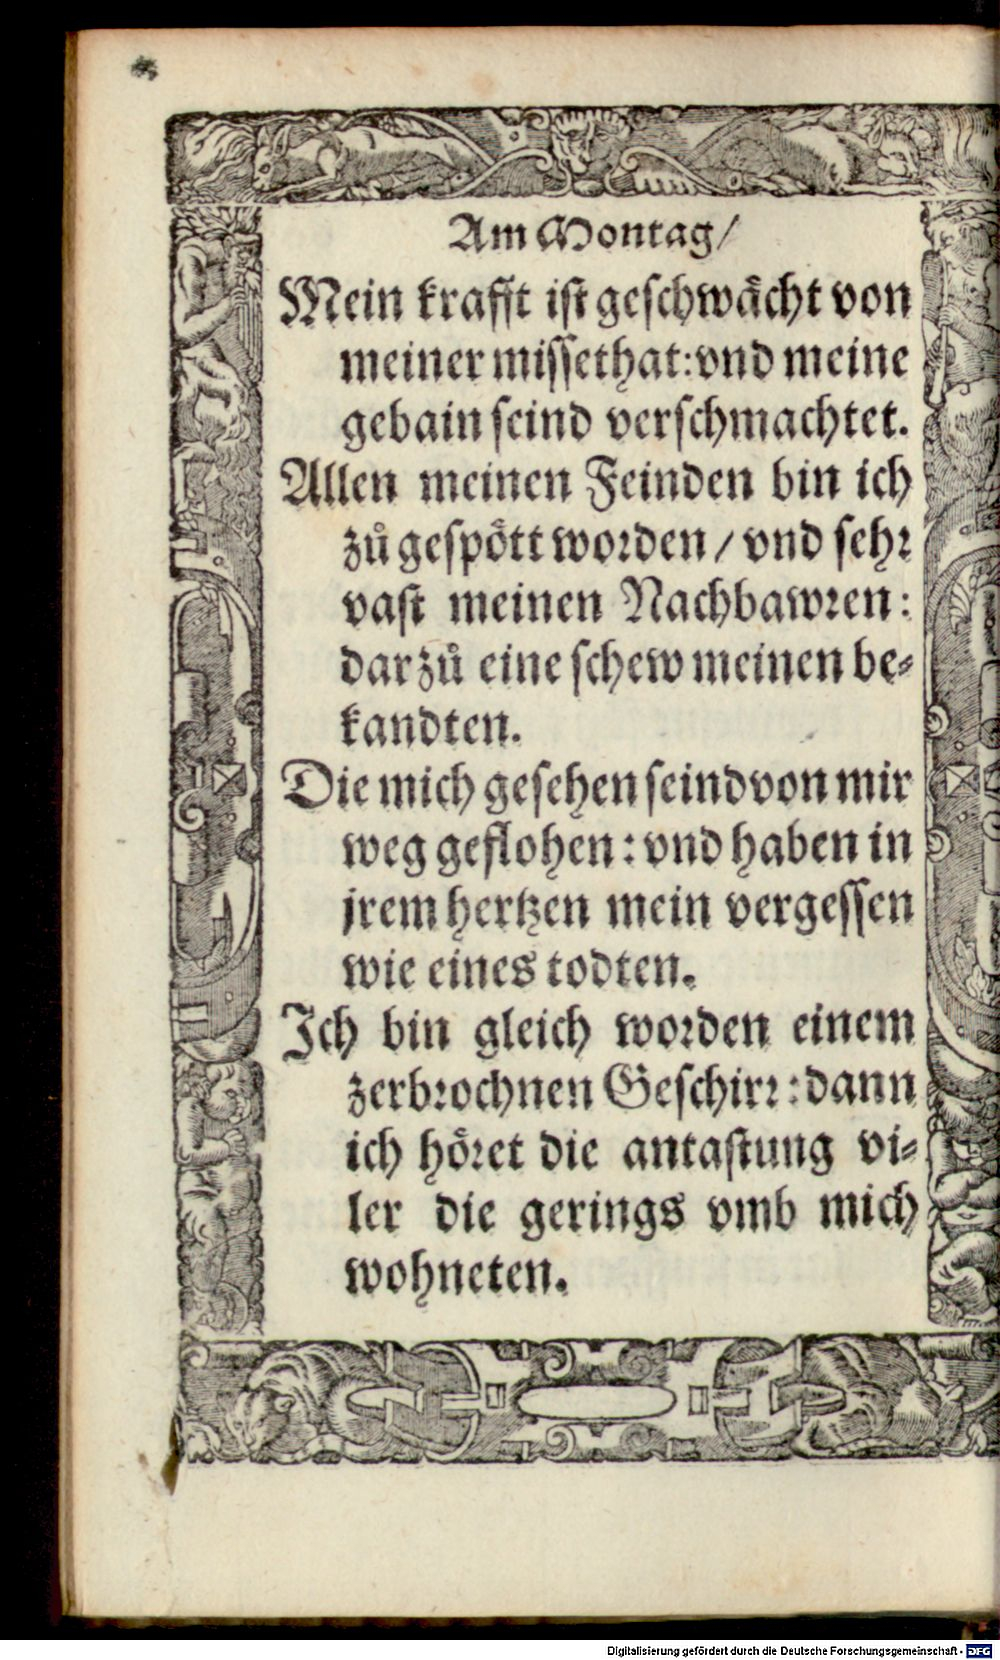 Am Montag/
Mein krafft ist geschwächt von
meiner missethat: vnd meine
gebain seind verschmachtet.
Allen meinen Feinden bin ich
zů gespött worden / vnd sehr
vast meinen Nachbawren:
darzů eine schew meinen be-
kandten.
Die mich gesehen seind von mir
weg geflohen: vnd haben in
jrem hertzen mein vergessen
wie eines todten.
Ich bin gleich worden einem
zerbrochnen Geschirr: dann
ich höret die antastung vi-
ler die gerings vmb mich
wohneten.
Digitalisierung gefördert durch die Deutsche Forschungsgemeinschaft - DFG